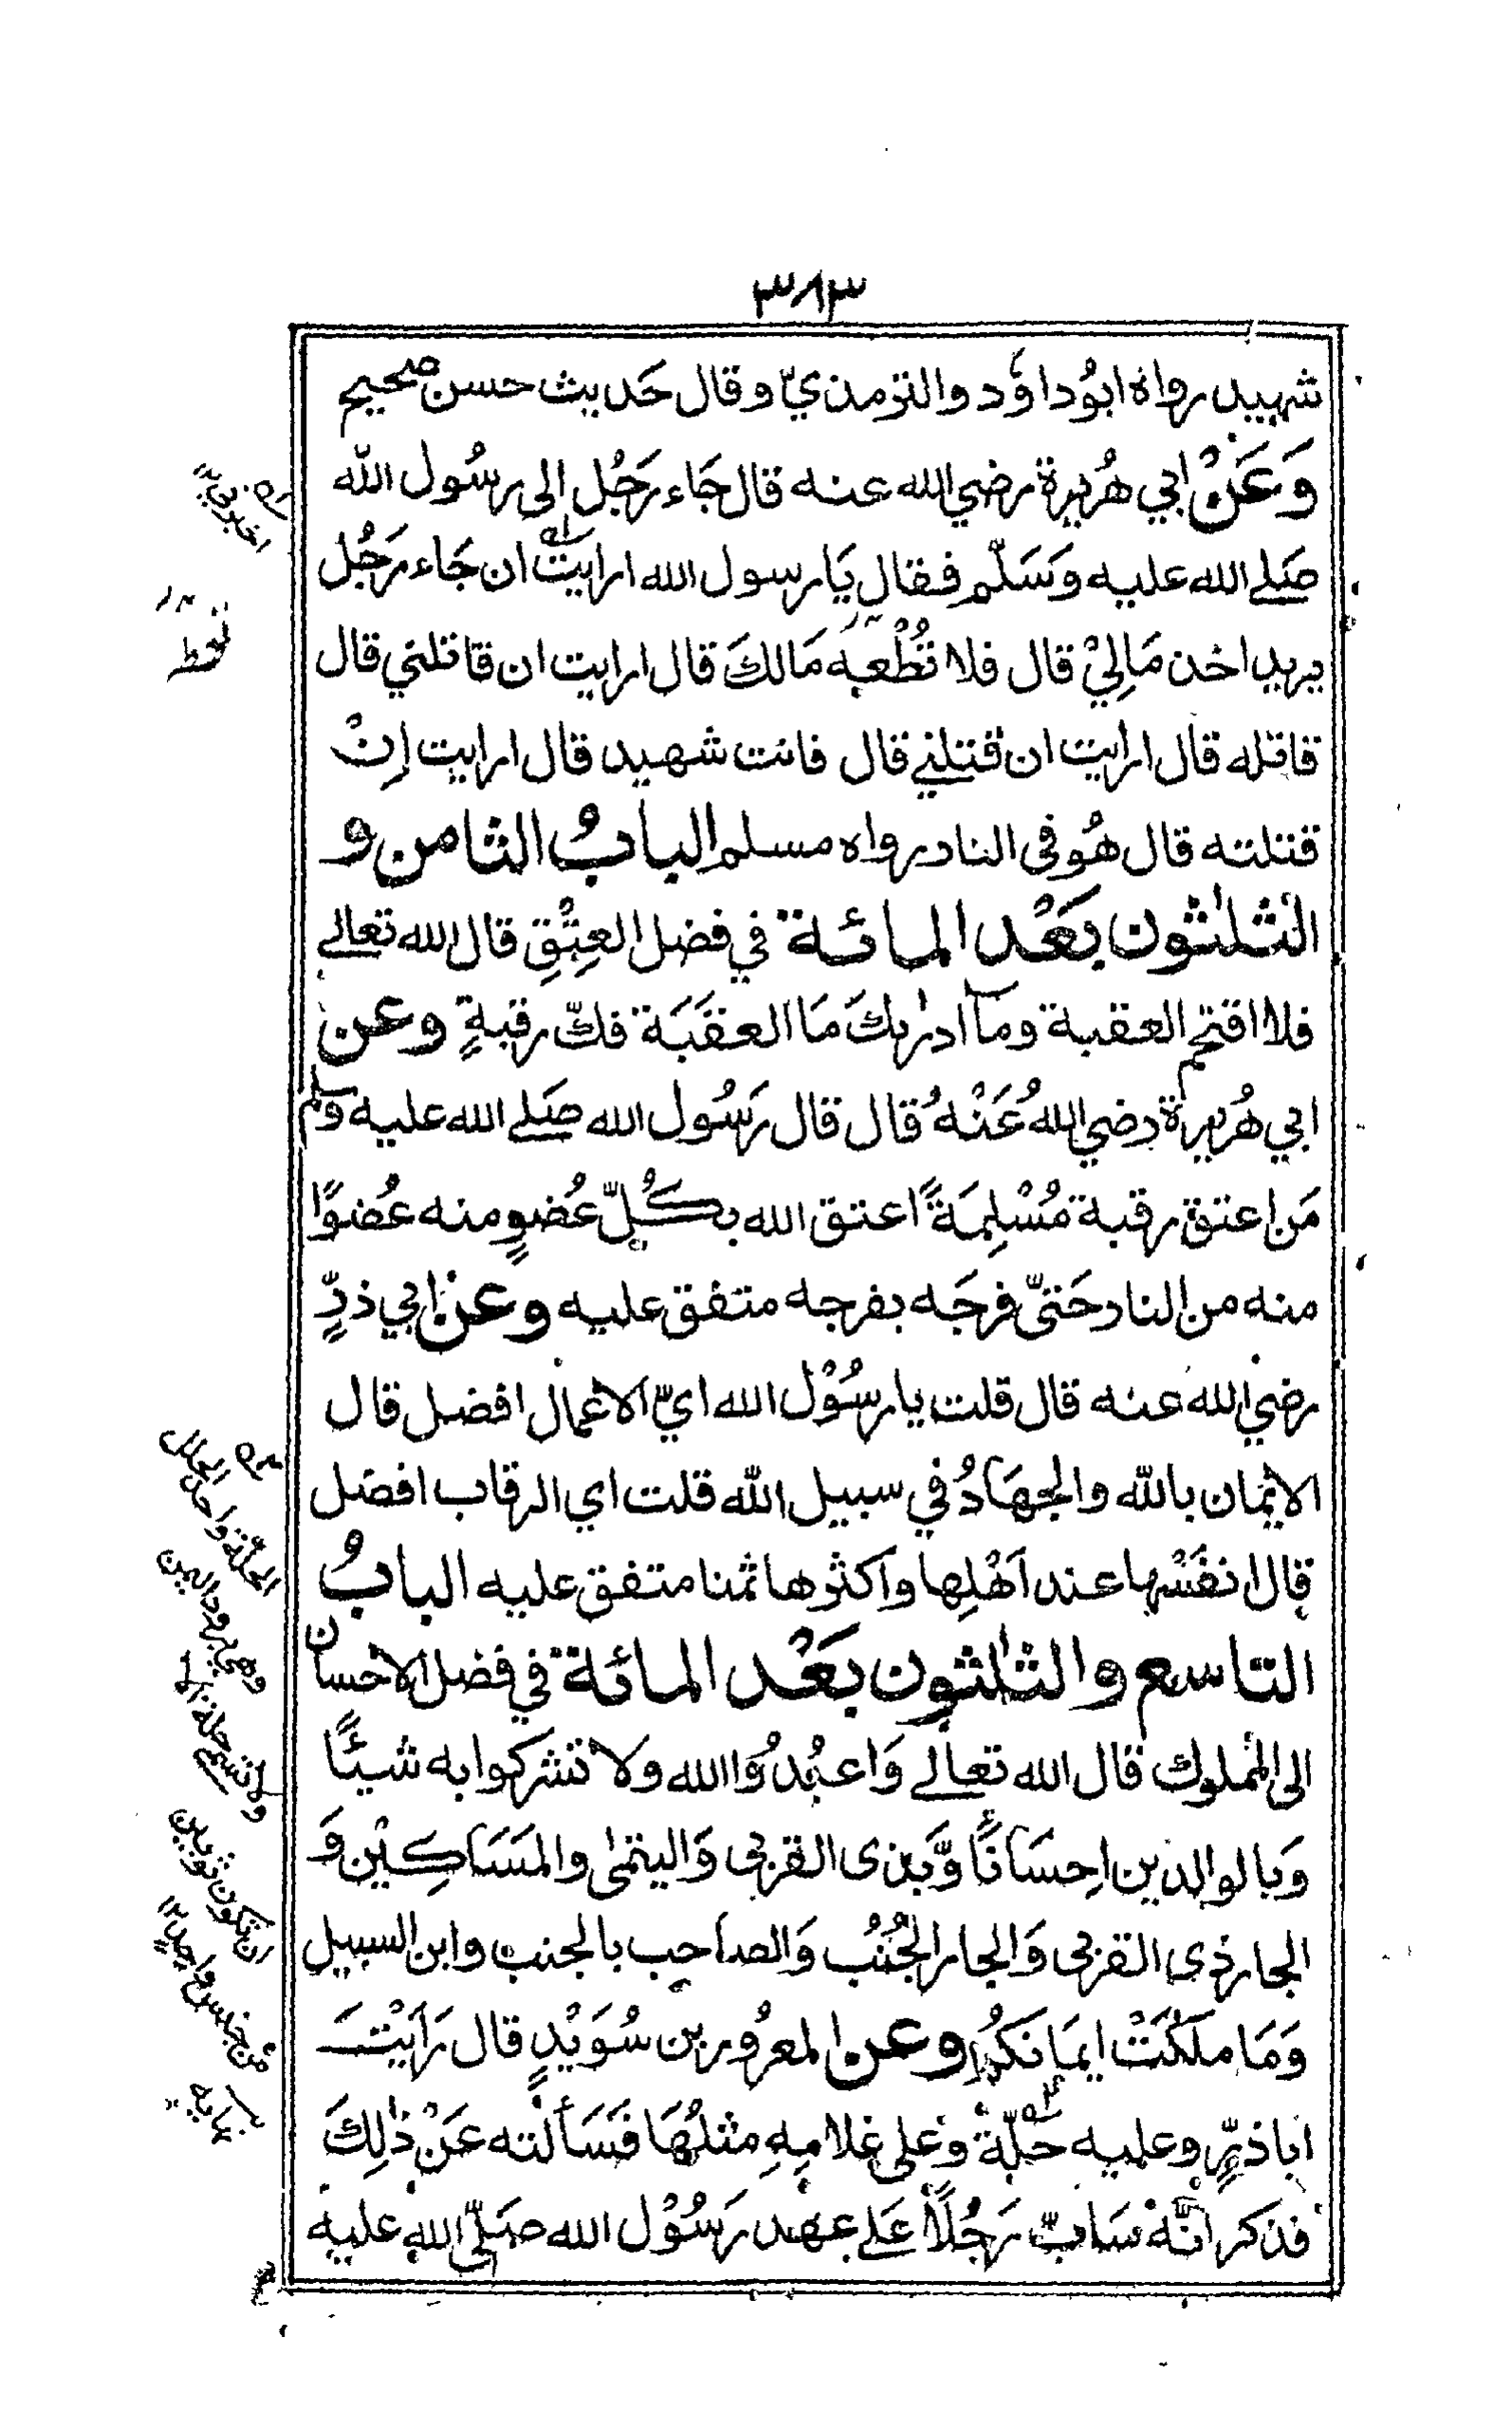 ٣٨٣
شهيد رواه ابُوداوُد والترمذيّ وقال حَديث حسن صحيح
وَعَنْ ابي هُريرة رضي الله عنه قال جَاء رَجُل الى رسُول الله
صَلے الله عليه وَسَلّم فقال يَا رسول الله ارايتَ ان جَاء رَجُل
يريد اخذ مَالِيْ قال فلا تُطْعِه مَالكَ قال ارايت ان قاتلني قال
قاتله قال ارايت ان قتلني قال فانت شهيد قال ارايت اِنْ
قتلته قال هُو فى النار رواه مسلم البابُ الثامن و
الثلٰثون بَعْد المائة في فضل العِتْقِ قال الله تعالے
فلا اقتحم العقبة ومآ ادرٰىكَ مَا العقَبَة فكّ رقبةٍ وعن
ابي هُريرة رضي اللهُ عَنْهُ قال قال رَسُول الله صَلے الله عليه وسلم
مَن اعتق رقبة مُسْلِمَةً اعتق الله بكُلّ عُضوٍ منه عُضوًا
منه من النار حَتىّ فرجَه بفرجه متفق عليه وعن ابي ذرٍّ
رضي الله عنه قال قلت يا رسُوْل الله ايّ الاعمال افضل قال
الايمان بالله والجهَادُ في سبيل الله قلت اي الرقاب افضل
قال انفَسُها عند اَهْلِها واكثرها ثمنا متفق عليه البابُ
التاسع والثلٰثون بَعْد المائة في فضل الاحسان
الى المملوك قال الله تعالے وَاعبُدُوا الله ولا تشركوا به شيئًا
وَبالوالدين اِحسَانًا وَّبذى القربى وَاليتمٰى والمسَاكِيْن وَ
الجار ذى القربى وَالجار الجُنُب وَالصاحِب بالجنب وابن السبيل
وَمَا ملَكَتْ ايمَانكُم وعن المعرُور بن سُوَيْدٍ قال رَاَيْتَ
اباذرٍّ وعليه حُلّة وَعلى غلامِهِ مثلُهَا فَسَألته عَنْ ذٰلِكَ
فذكر انَّهٗ سَابّ رَجُلًا عَلے عهد رَسُوْل الله صَلّى الله عليه
اخبرني ١٢
الحلّة واحد الحلل
وهي برود اليمن
ولا تسمے حلة الا
ان تكون ثوبين
من جنس واحدٍ ١٢
نهايه